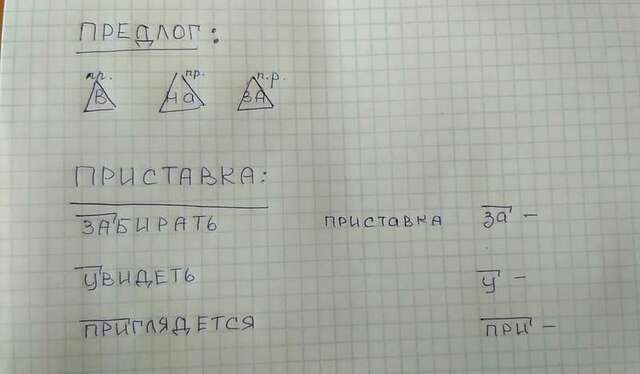 ПРЕДЛОГ:
пр. пр. п.р.
В на ЗА
ПРИСТАВКА:
ЗАБИРАТЬ приставка за -
УВИДЕТЬ у -
ПРИГЛЯДЕТСЯ ПРИ -